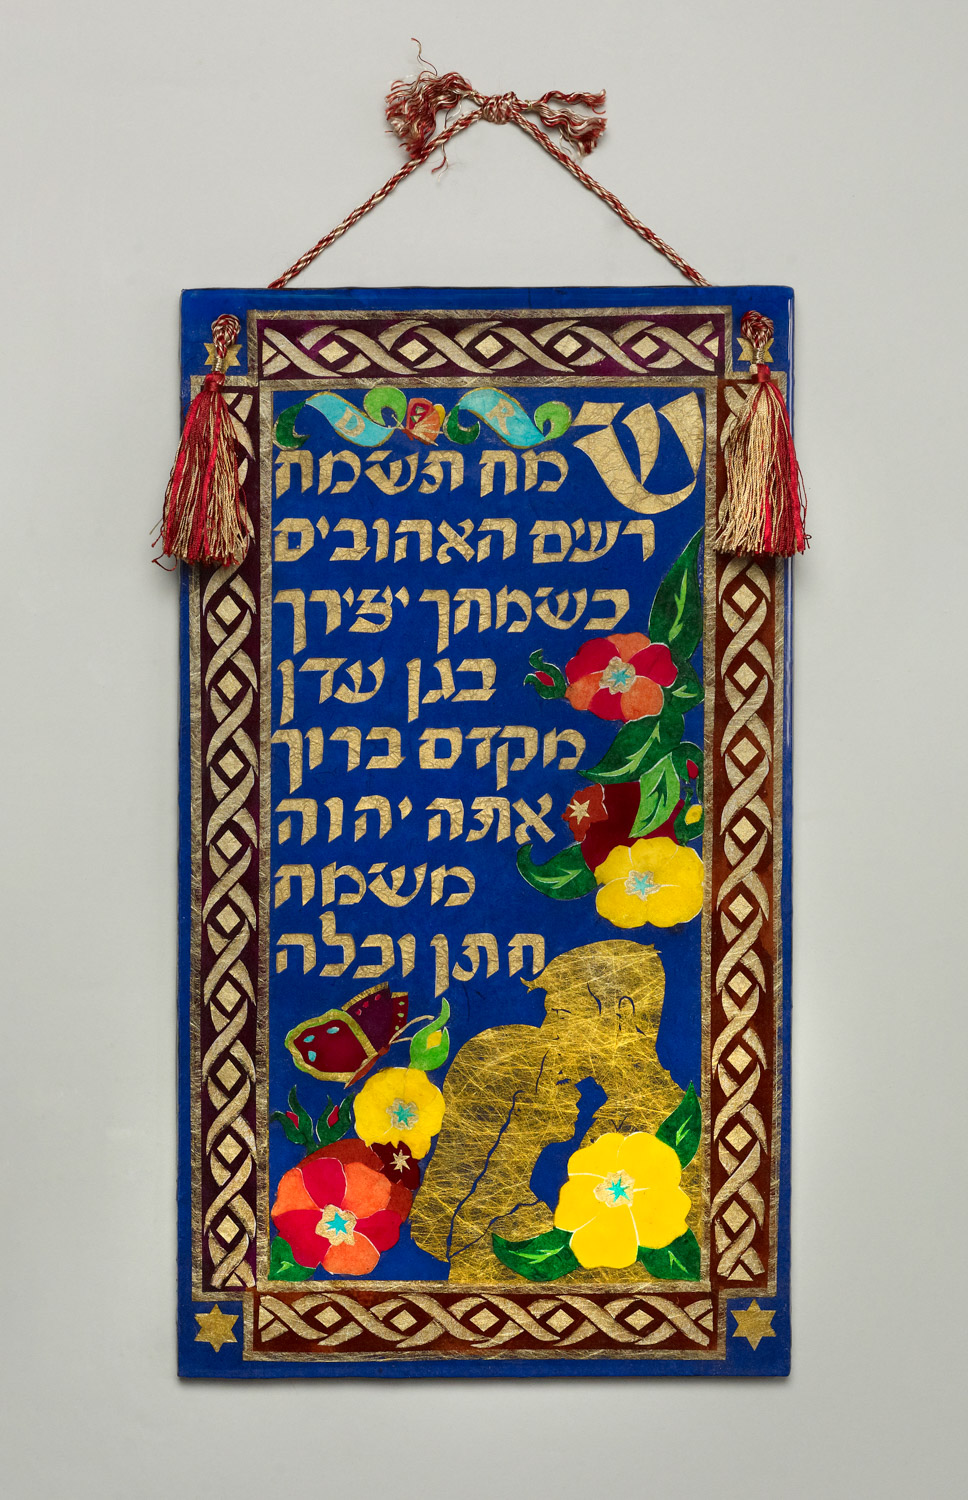 D R
שמח תשמח
רעים האהובים
כשמחך יצירך
בגן עדן
מקדם ברוך
אתה יהוה
משמח
חתן וכלה